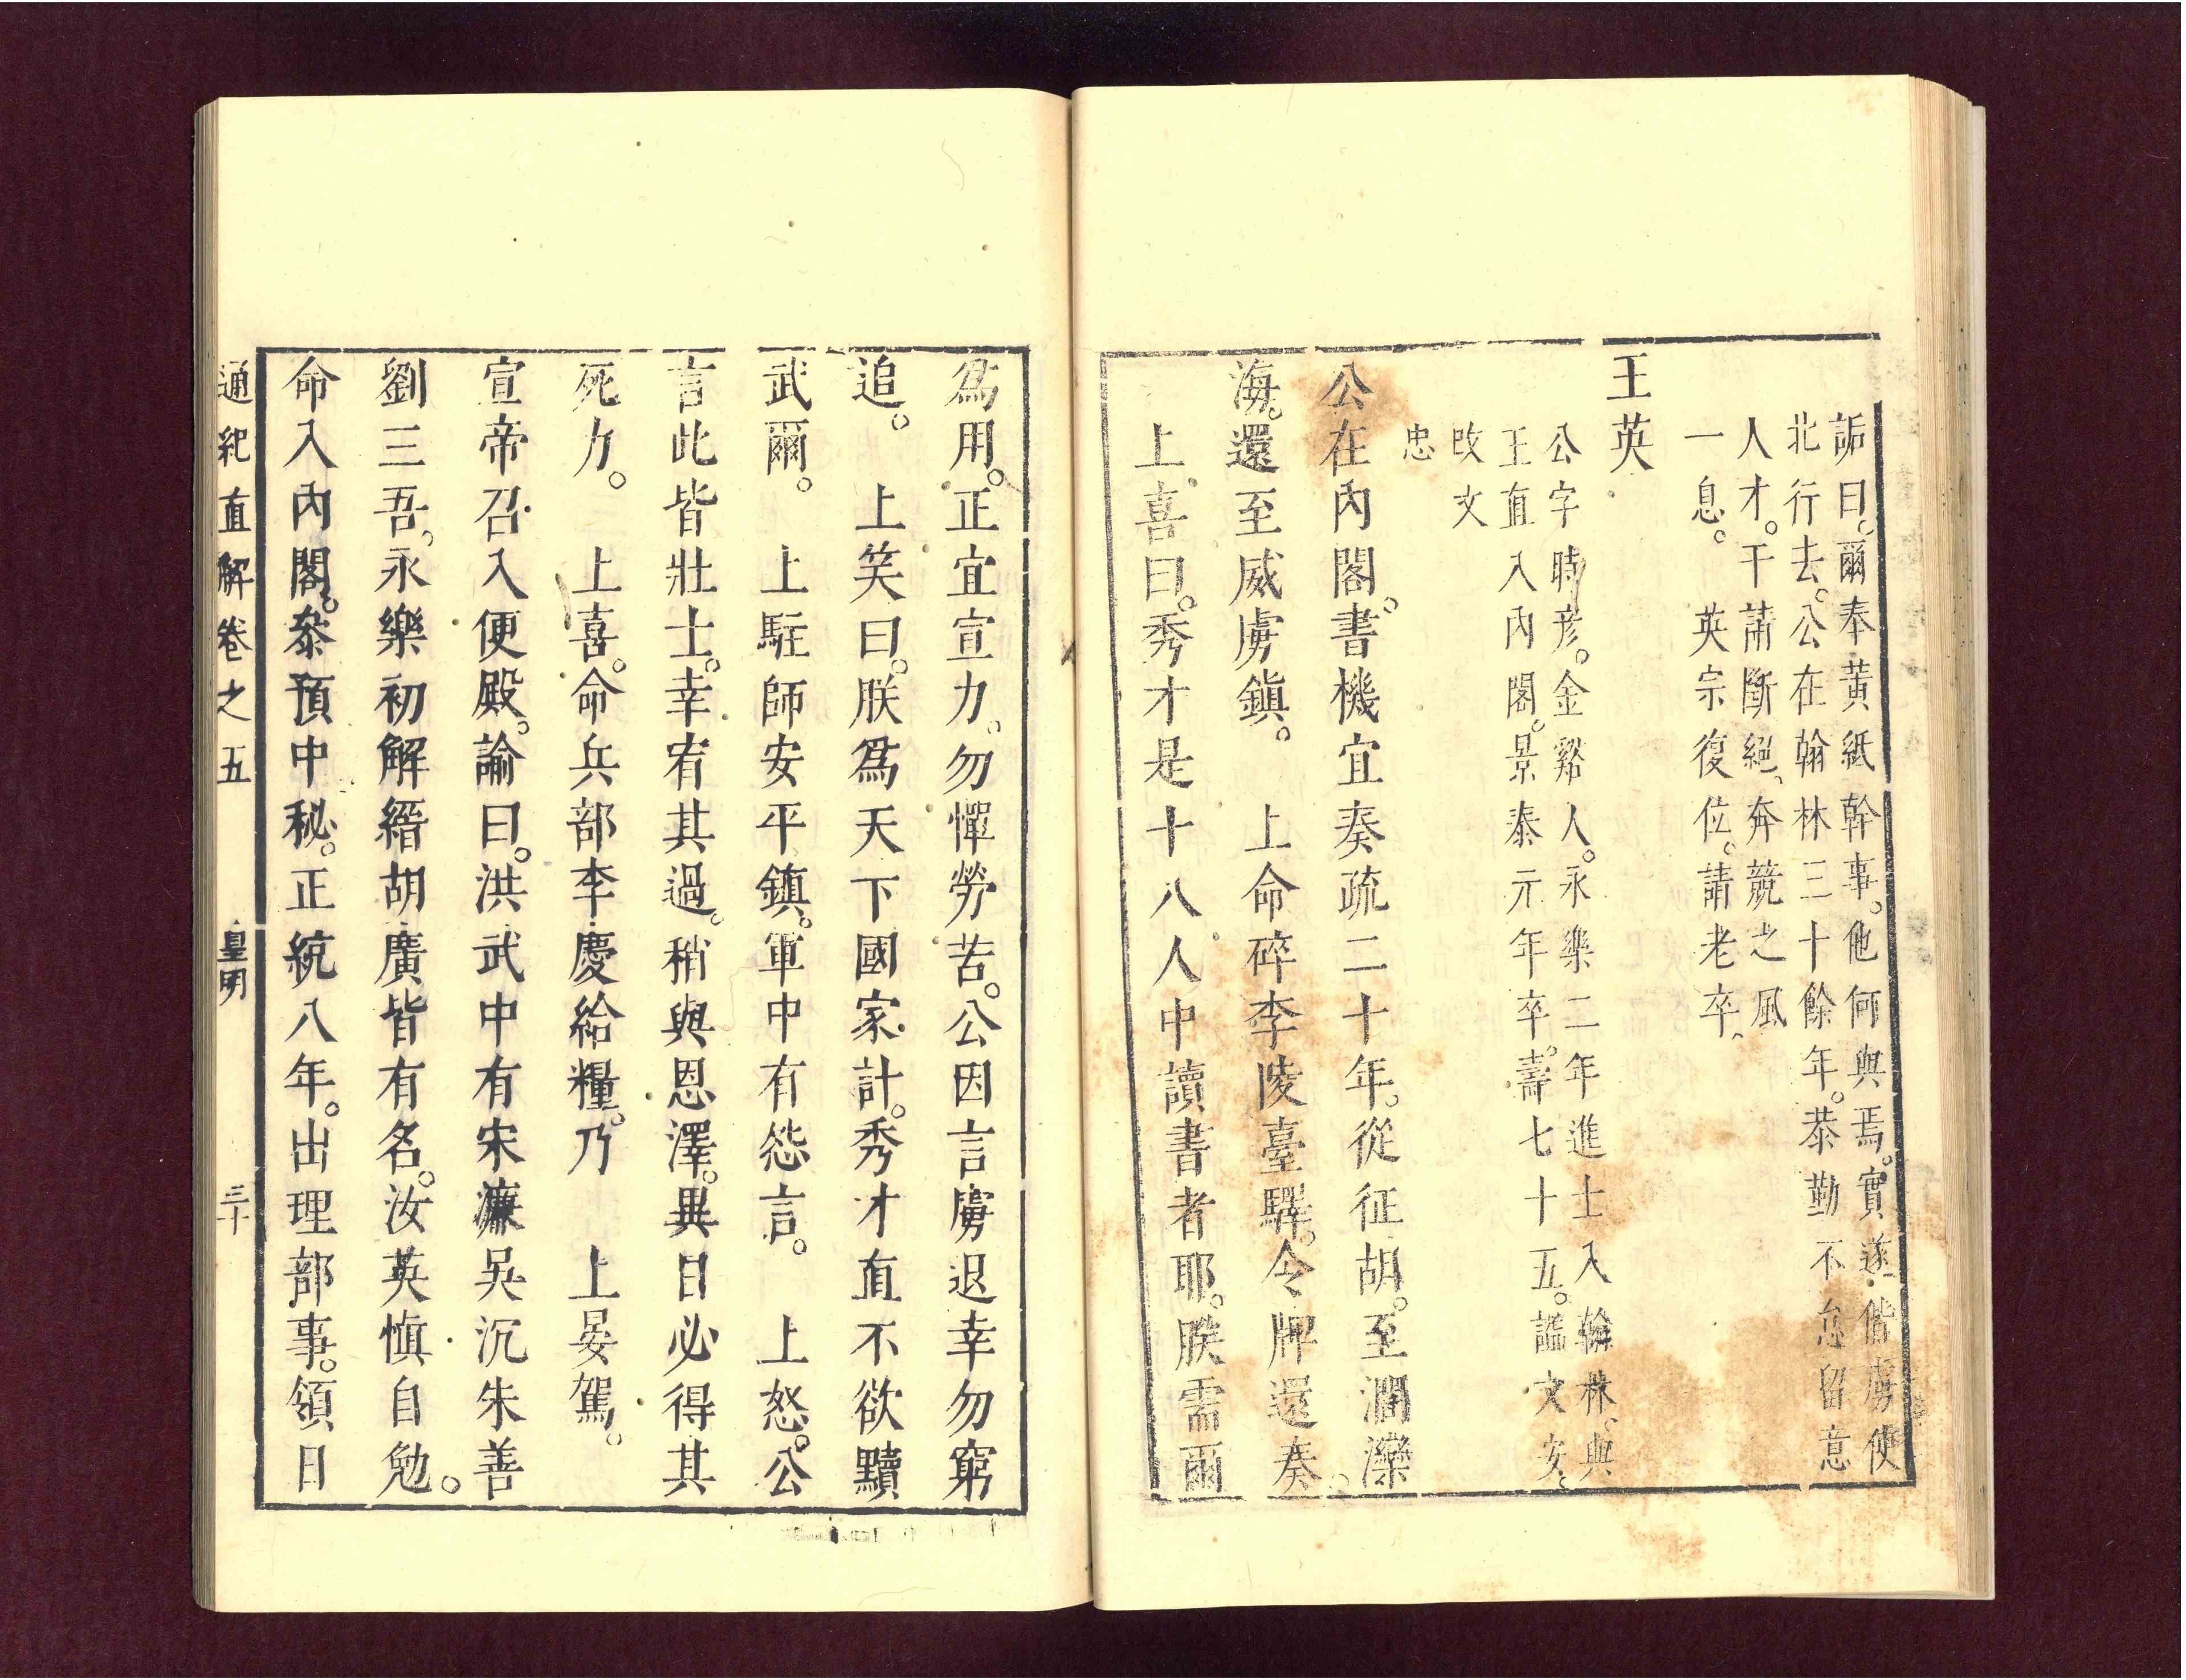 詬曰。爾奉黃紙幹事。他何與焉。實遂偕虜使
北行去。公在翰林三十餘年。恭勤不怠留意
人才。干請斷絕、奔競之風
一息。　英宗復位。請老卒。
王英
公字時彦。金谿人。永樂二年進士入翰林。與
王直入內閣。景泰元年卒。壽七十五。謚文安。
改文
忠
公在內閣。書機宜奏疏二十年。從征胡。至濶灤
海。還至威虜鎮。　上命碎李陵臺驛。令牌還奏。
上喜曰。秀才是十八人中讀書者耶。朕需爾
爲用。正宜宣力。勿憚勞苦。公因言虜退幸勿窮
追。　上笑曰。朕爲天下國家計。秀才直不欲黷
武爾。　上駐師安平鎮。軍中有怨言。　上怒。公
言此皆壯士。幸宥其過。稍與恩澤。異日必得其
死力。　上喜。命兵部李慶給糧。乃　上晏駕。
宣帝召入便殿。諭曰。洪武中有宋濂吳沉朱善
劉三吾。永樂初解縉胡廣皆有名。汝英愼自勉。
命入內閣。叅預中秘。正統八年。出理部事。領日
通紀直解卷之五　皇明　三十